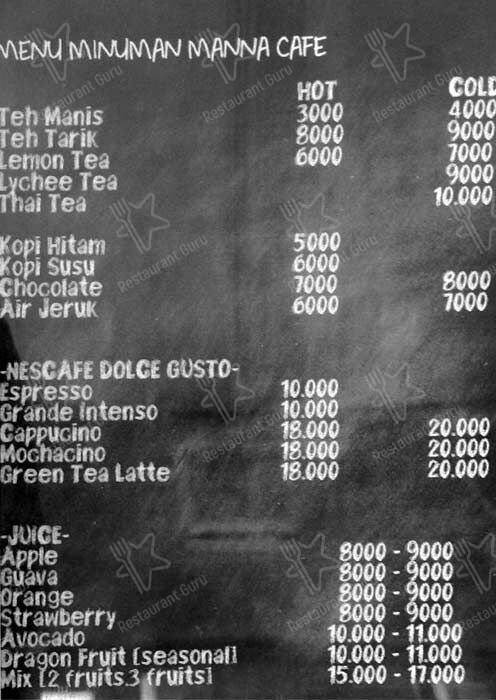 MENU MINUMAN MANNA CAFE
HOT COLD
Teh Manis 3000 4000
Teh Tarik 8000 9000
Lemon Tea 6000 7000
Lychee Tea 9000
Thai Tea 10.000
Kopi Hitam 5000
Kopi Susu 6000
Chocolate 7000 8000
Air Jeruk 6000 7000
-NESCAFE DOLCE GUSTO-
Espresso 10.000
Grande Intenso 10.000
Cappucino 18.000 20.000
Mochacino 18.000 20.000
Green Tea Latte 18.000 20.000
-JUICE-
Apple 8000 - 9000
Guava 8000 - 9000
Orange 8000 - 9000
Strawberry 8000 - 9000
Avocado 10.000 - 11.000
Dragon Fruit [seasonal] 10.000 - 11.000
Mix [2 fruits.3 fruits] 15.000 - 17.000
Restaurant Guru